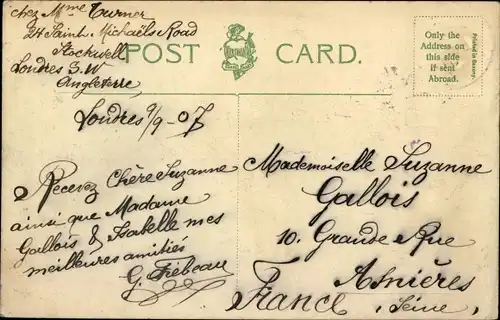 chez Mme Turner
24 Saint Michaels Road
Stockwell
Londres S.W
Angleterre
POST CARD.
Only the
Address on
this side
if sent
Abroad.
Printed in Saxony.
Londres 9/9-07
Recevez Chère Suzanne
ainsi que Madame
Gallois & Isabelle mes
meilleures amitiés
Mademoiselle Suzanne
Gallois
10. Grande Rue
Asnières
France (Seine)